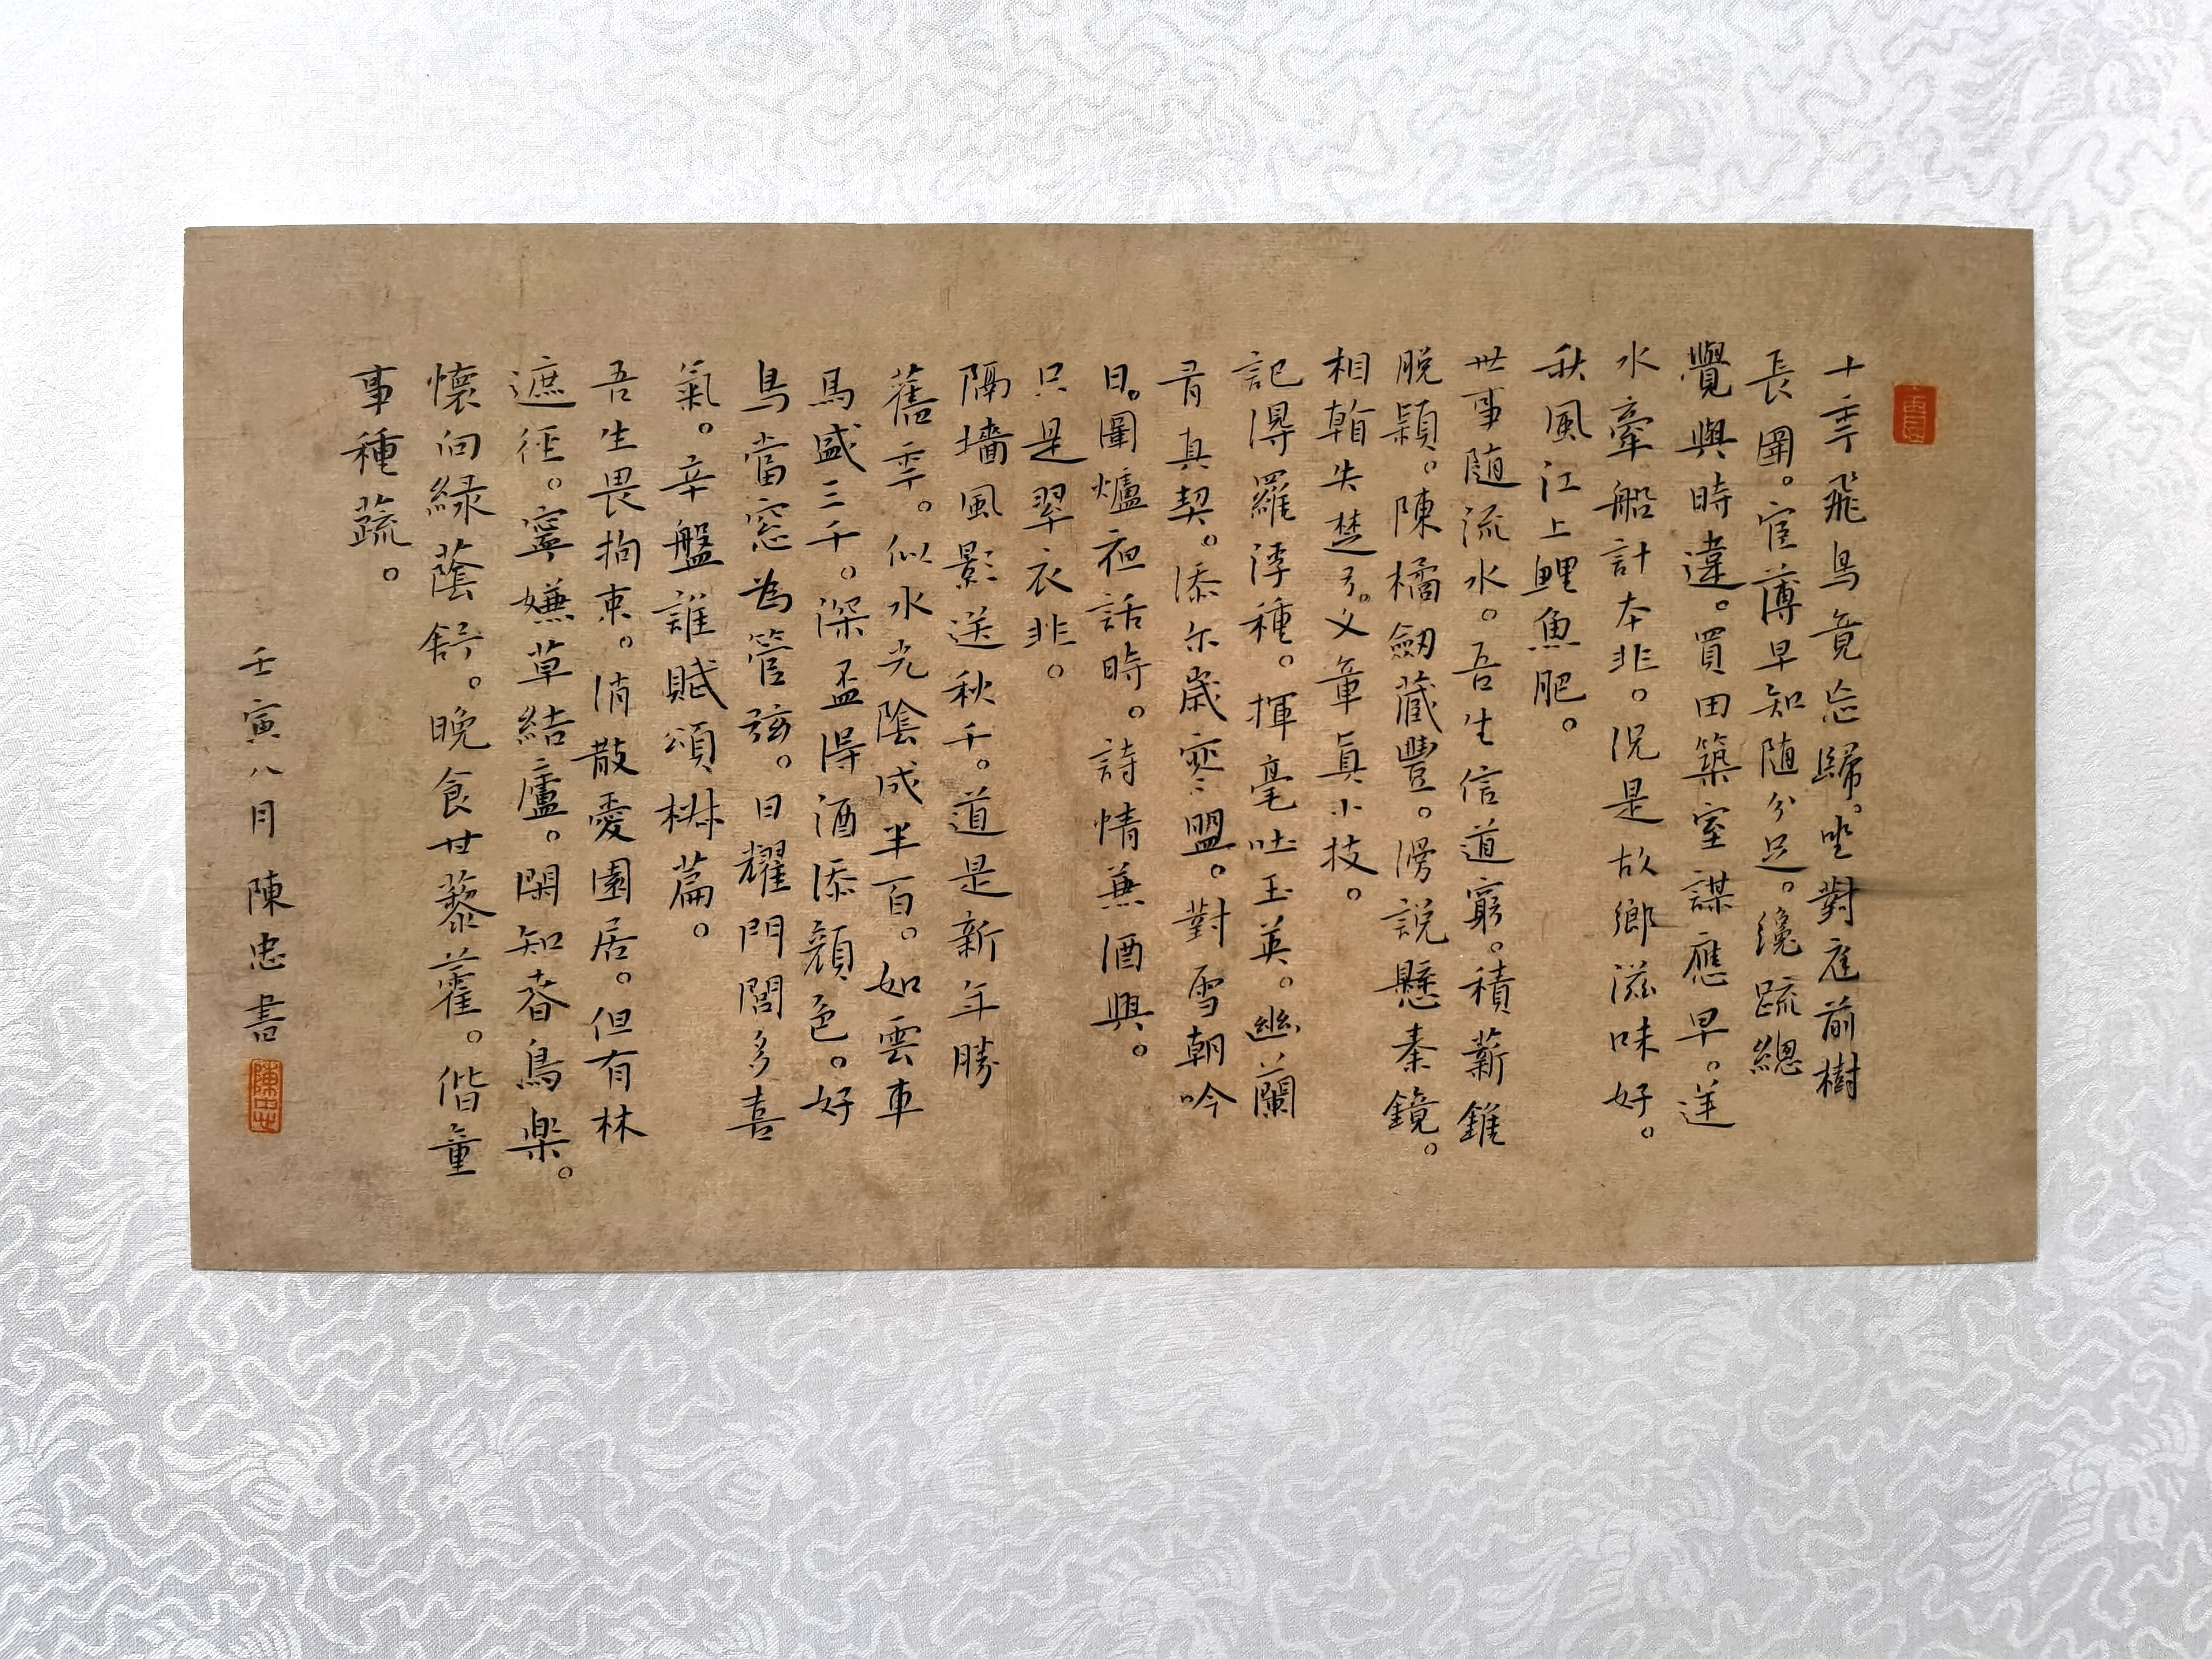 十年飛鳥竟忘歸。坐對庭前樹
長圍。宦薄早知随分足。纔踈總
覺與時違。買田築室謀應早。逆
水牽船計本非。況是故鄉滋味好。
秋風江上鯉魚肥。
世事随流水。吾生信道窮。積薪錐
脫穎。陳橘劒藏豐。漫説懸秦鏡。
相翰失楚弓。文章真小技。
記得羅浮種。揮毫吐玉英。幽蘭
有真契。添尔歲寒盟。對雪朝吟
日。圍爐夜話時。詩情兼酒興。
只是翠衣非。
隔墻風影送秋千。道是新年勝
舊年。似水光陰成半百。如雲車
馬盛三千。深盃得酒添顏色。好
鳥當窓為管弦。日耀門閭多喜
氣。辛盤誰賦頌椒篇。
吾生畏拘束。消散愛園居。但有林
遮徑。寧嫌草結廬。閑知春鳥樂。
懷向綠蔭舒。晚食甘藜藿。偕童
事種蔬。
壬寅八月陳忠書
陳忠